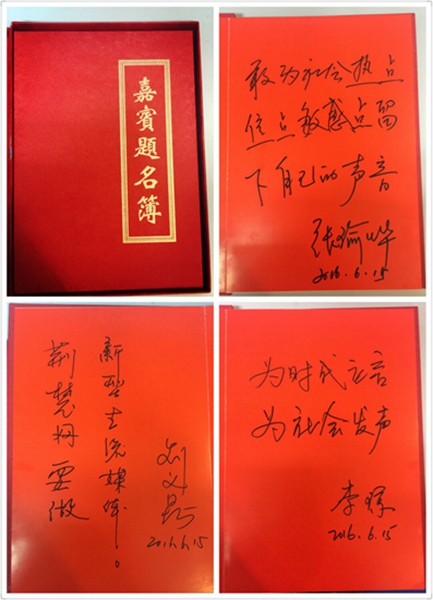 嘉賓題名簿
敢为社会热点
焦点敏感点留
下自己的声音
张瑜烨
2016.6.15
荆楚网要做
新型主流媒体。
刘义昆
2016.6.15
为时代立言
为社会发声
李
2016.6.15